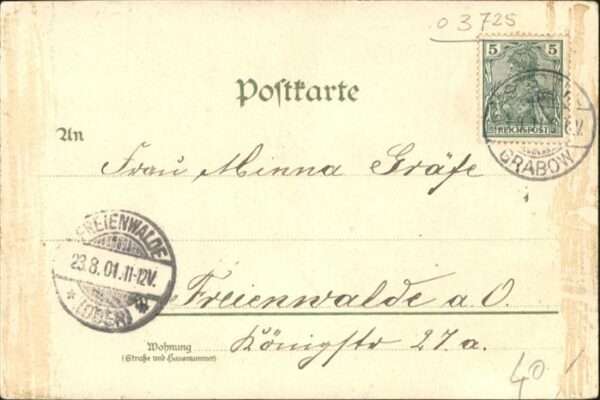 03725
5 5
REICHSPOST
Postkarte
GRABOW
An
Frau Minna Gräfe
FREIENWALDE
23.8.01.11-12V.
* (ODER) *
Freienwalde a. O.
Wohnung
(Straße und Hausnummer)
Königstr 27.a.
40